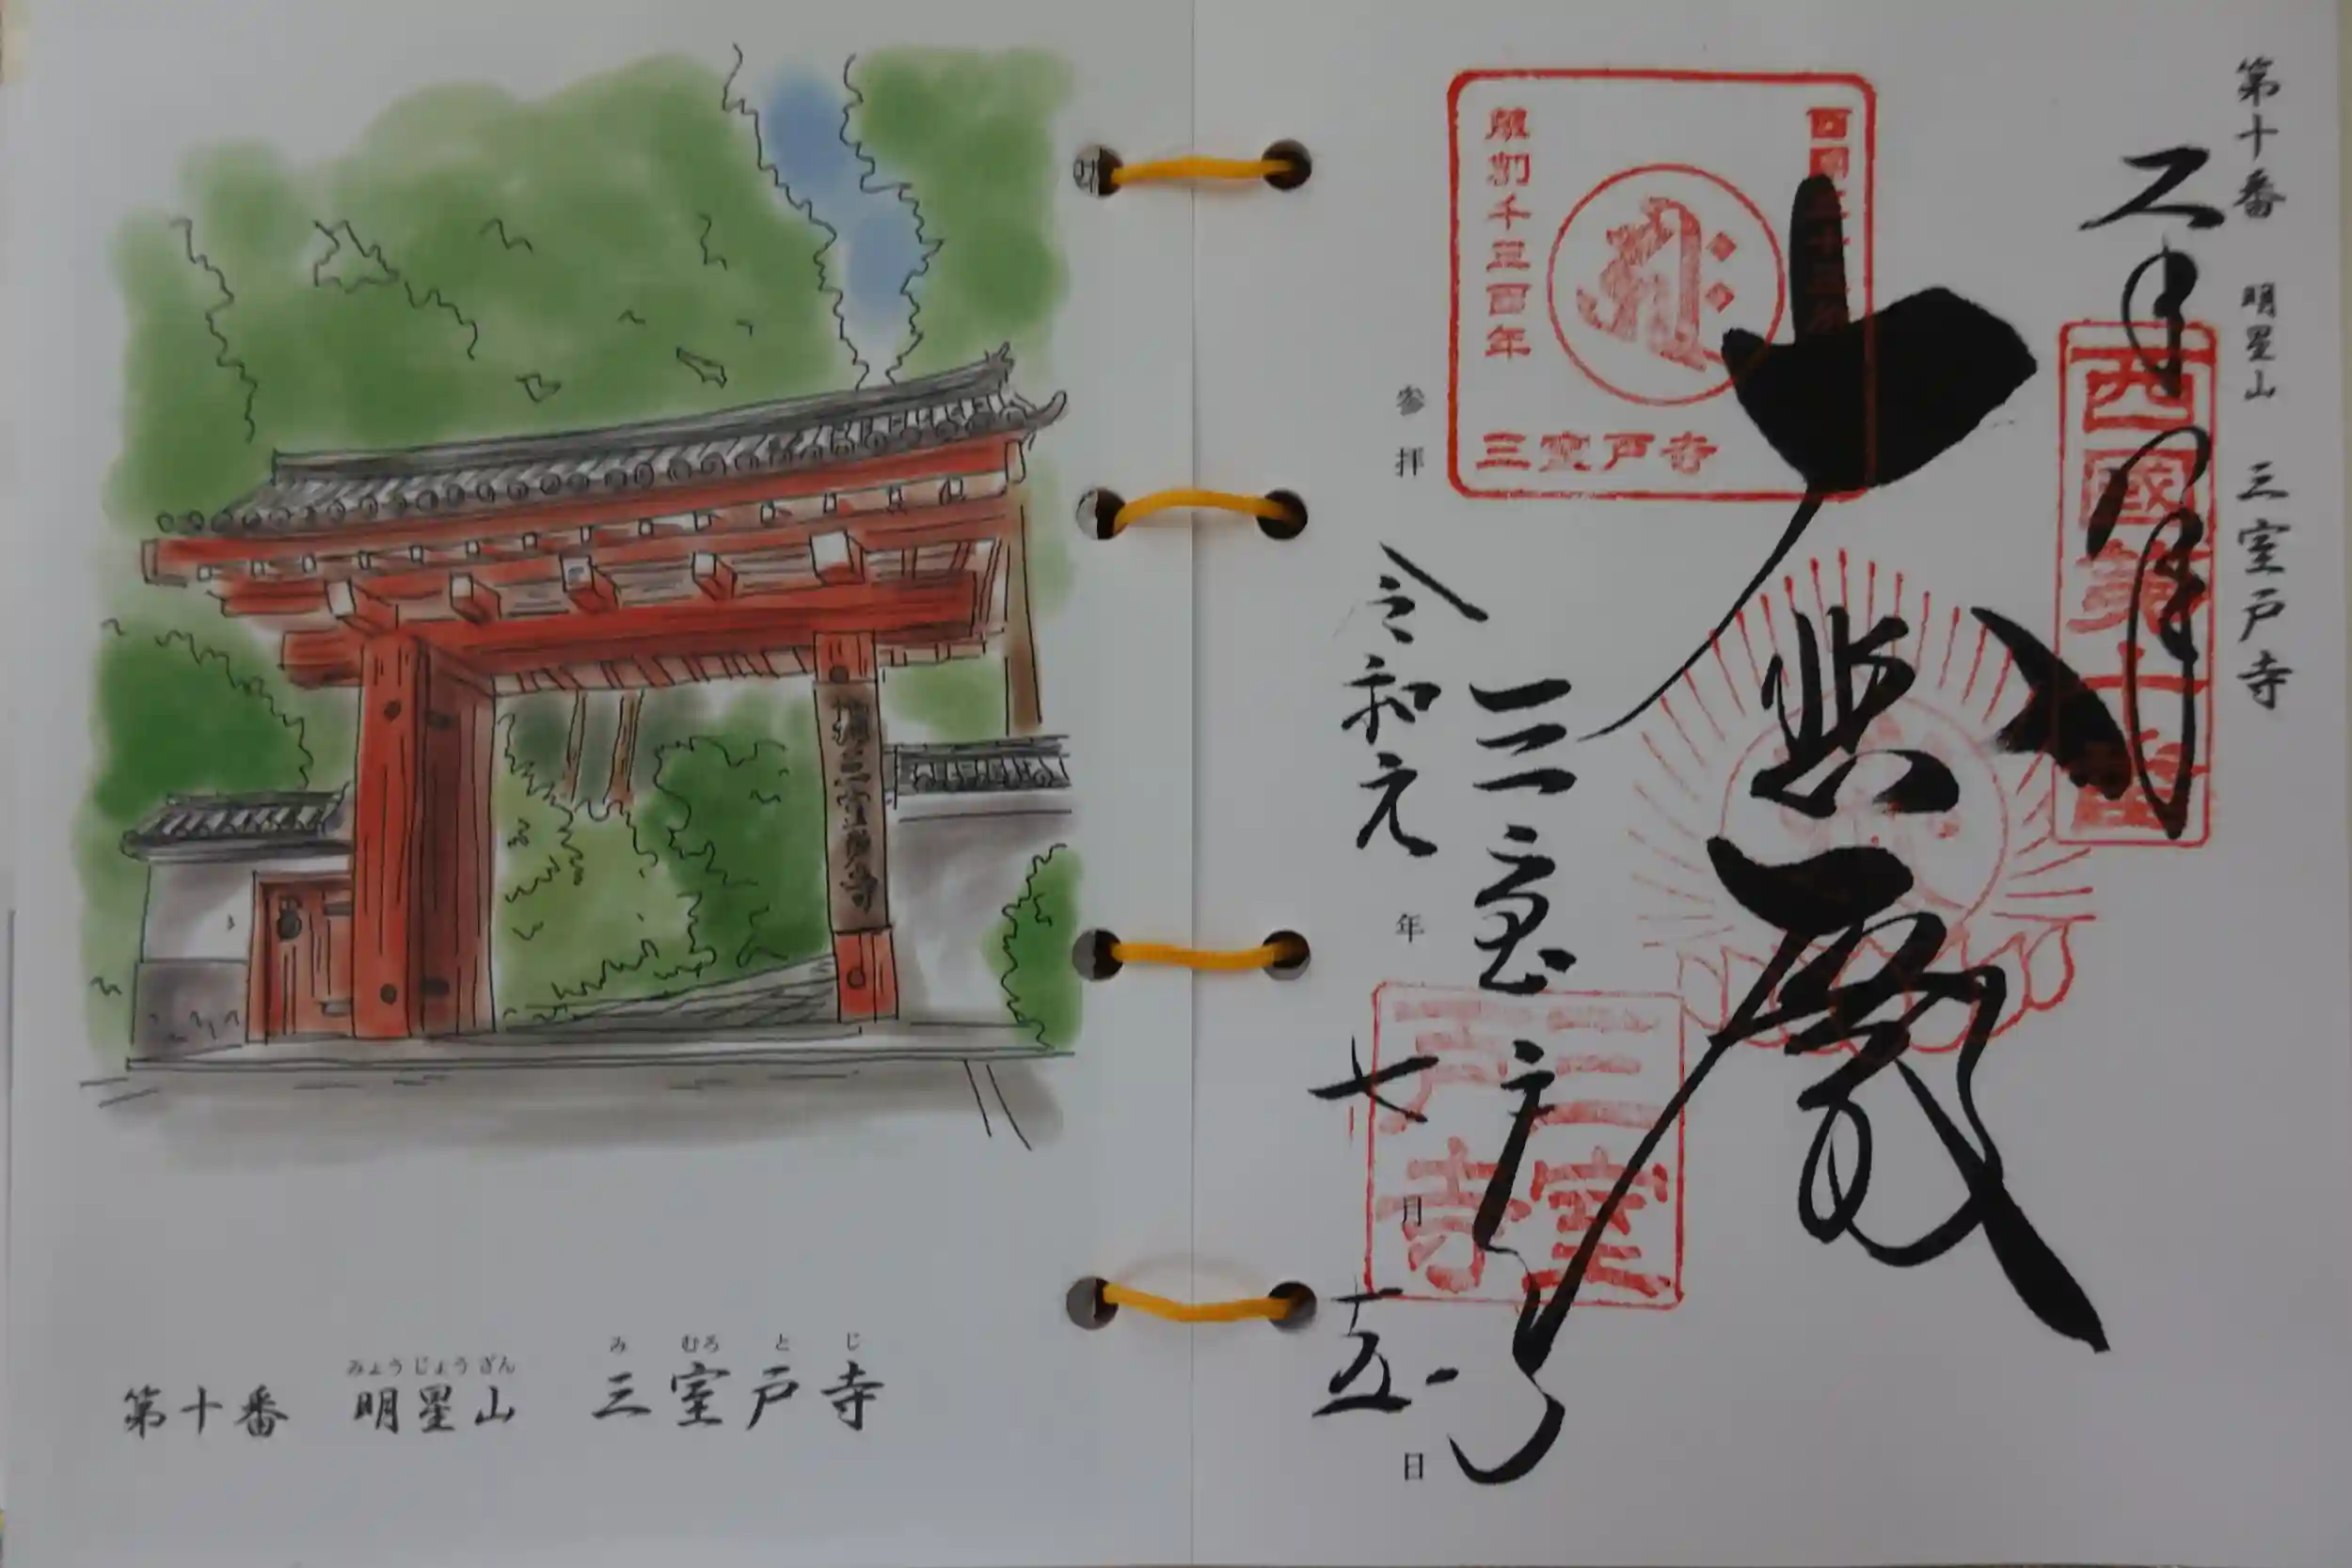 みょう じょう ざん
み むろ と じ
第十番 明星山 三室戸寺
三室戸寺
第十番 明星山 三室戸寺
西國第十番
奉拝
大悲殿
三室戸寺
西国三十三所
草創千三百年
三室戸寺
三室戸寺
参拝 令和元年 七月 十五日